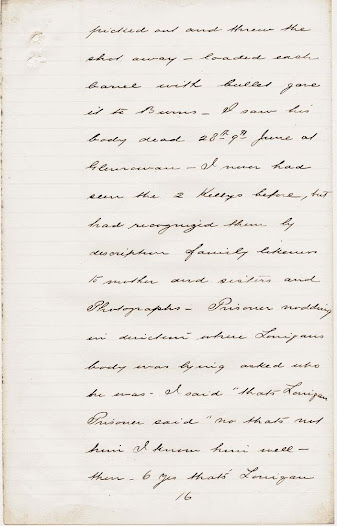 picked out and threw the
shot away – loaded each
barrel with bullet gave
it to Burns – I saw his
body dead 28th 9th June at
Glenrowan – I never had
seen the 2 Kellys before, but
had recognized them by
description family likeness
to mother and sisters and
Photographs – Prisoner nodding
in direction where Lonigans
body was lying asked who
he was – I said "thats Lonigan
Prisoner said "no thats not
him I know him well –
then – 6 Yes thats Lonigan
16